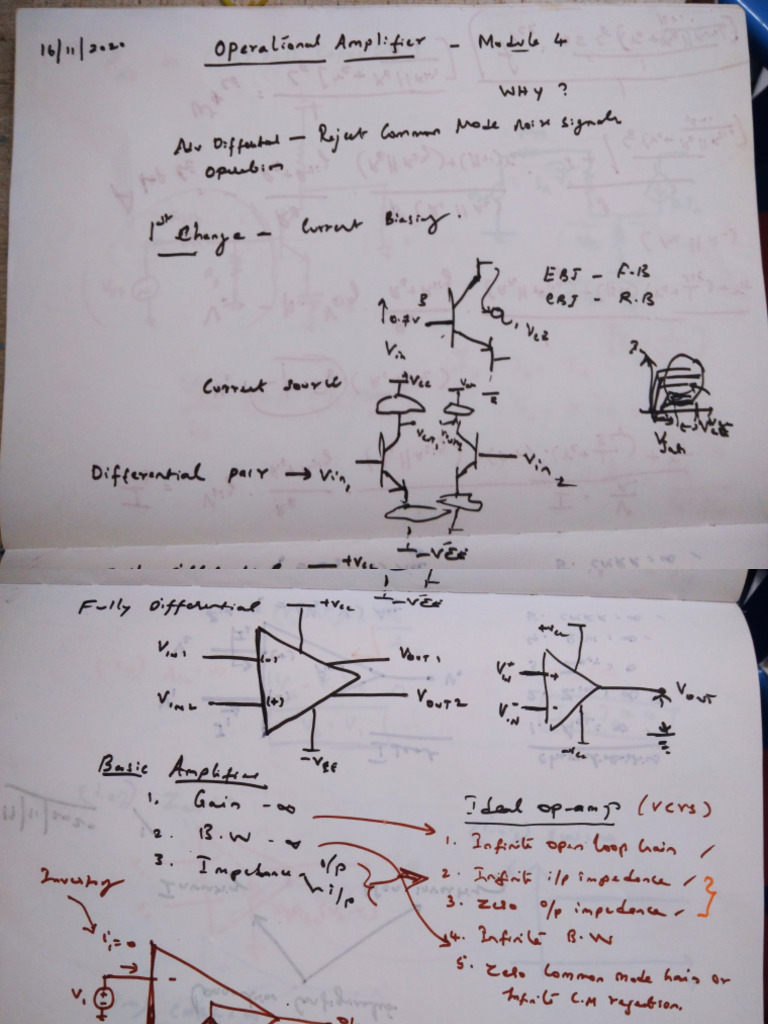 16/11/2020
Operational Amplifier - Module 4
WHY ?
Reject Common Mode noise signals
Operation
1st Change - Current Biasing.
EBJ - F.B
CBJ - R.B
B
0.7V
VCE
Vin
Current source
+VCC
Differential pair → Vin1
Vin2
-VEE
Fully Differential
+VCC
VIN1
(-)
VOUT1
VIN2
(+)
VOUT2
-VEE
+VCC
VIN+
+
VOUT
VIN-
-
-VCC
Basic Amplifier
1. Gain - ∞
2. B.W - ∞
3. Impedance
o/p
i/p
Ideal op-amp (VCVS)
1. Infinite open loop Gain
2. Infinite i/p impedance
3. Zero o/p impedance
4. Infinite B.W
5. Zero Common mode Gain or
Infinite C.M rejection.
Inverting
i1=0
V1
-